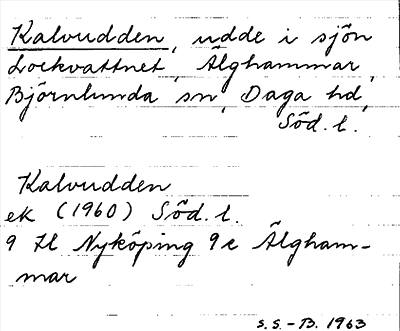 Kalvudden, udde i sjön
Lockvattnet, Älghammar,
Björnlunda sn, Daga hd,
Söd. l.
Kalvudden
ek (1960) Söd. l.
9 H Nyköping 9 c Älgham-
mar
S. S. - B. 1963